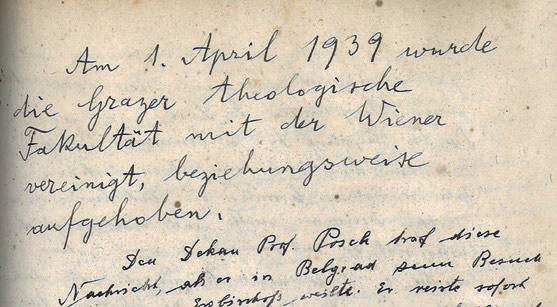 Am 1. April 1939 wurde
die Grazer theologische
Fakultät mit der Wiener
vereinigt, beziehungsweise
aufgehoben.
Den Dekan Prof. Posch traf diese
Nachricht, als er in Belgrad zum Besuch
Erzbischofs weilte. Er reiste sofort